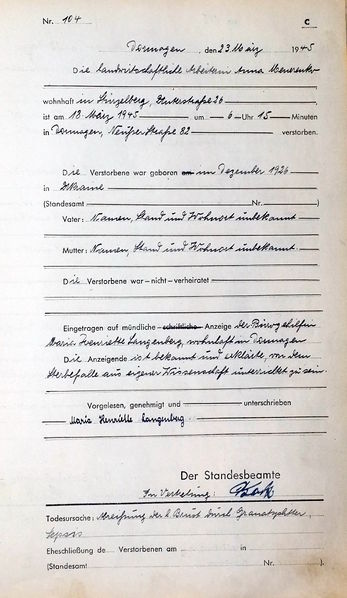 Nr. 104 C
Dormagen, den 23. März 1945
Die landwirtschaftliche Arbeiterin Anna
wohnhaft in Stürzelberg, 26
ist am 18. März 1945 um 6 Uhr 15 Minuten
in Dormagen, Neußer Straße 82 verstorben.
Die Verstorbene war geboren am im Dezember 1926
in Ukraine
(Standesamt Nr. )
Vater: Namen, Stand und Wohnort unbekannt
Mutter: Namen, Stand und Wohnort unbekannt.
Die Verstorbene war – nicht – verheiratet
Eingetragen auf mündliche – schriftliche – Anzeige der Bürogehilfin
Maria Henriette Langenberg, wohnhaft in Dormagen
Die Anzeigende ist bekannt und erklärte, von dem
Sterbefalle aus eigener Wissenschaft unterrichtet zu sein.
Vorgelesen, genehmigt und unterschrieben
Maria Henriette Langenberg
Der Standesbeamte
In Vertretung:
Todesursache: Abreißung der l. Brust durch Granatsplitter,
Sepsis
Eheschließung de Verstorbenen am in
(Standesamt Nr. ).